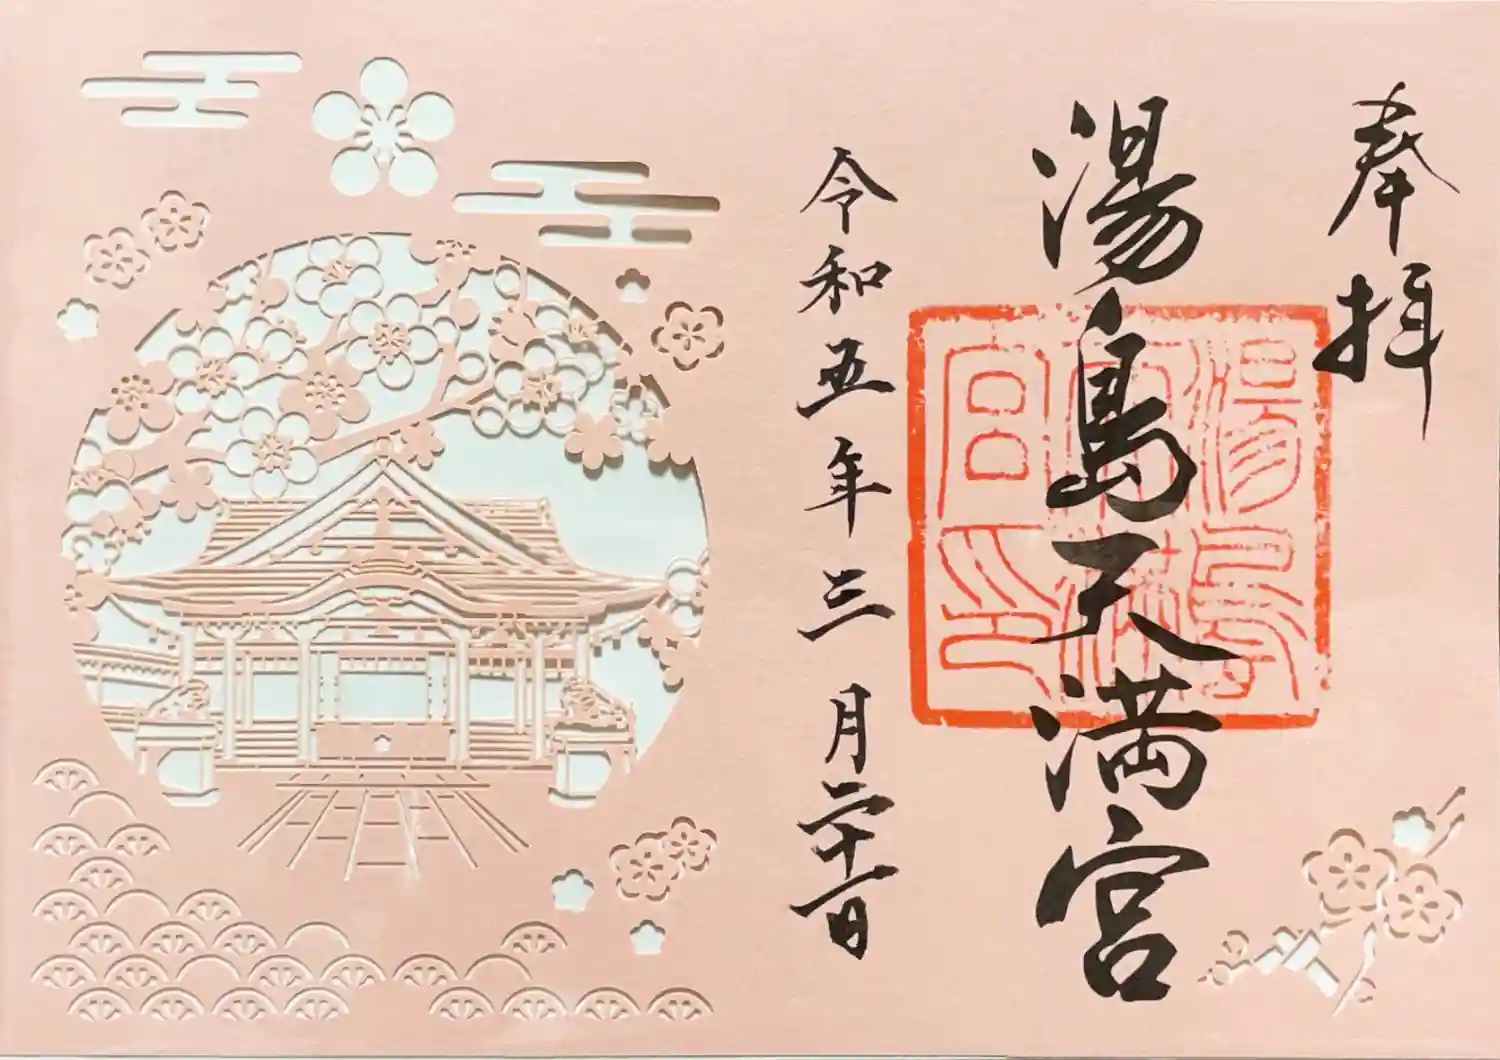 奉拝
湯島天満宮
湯島天満宮印
令和五年三月二十一日